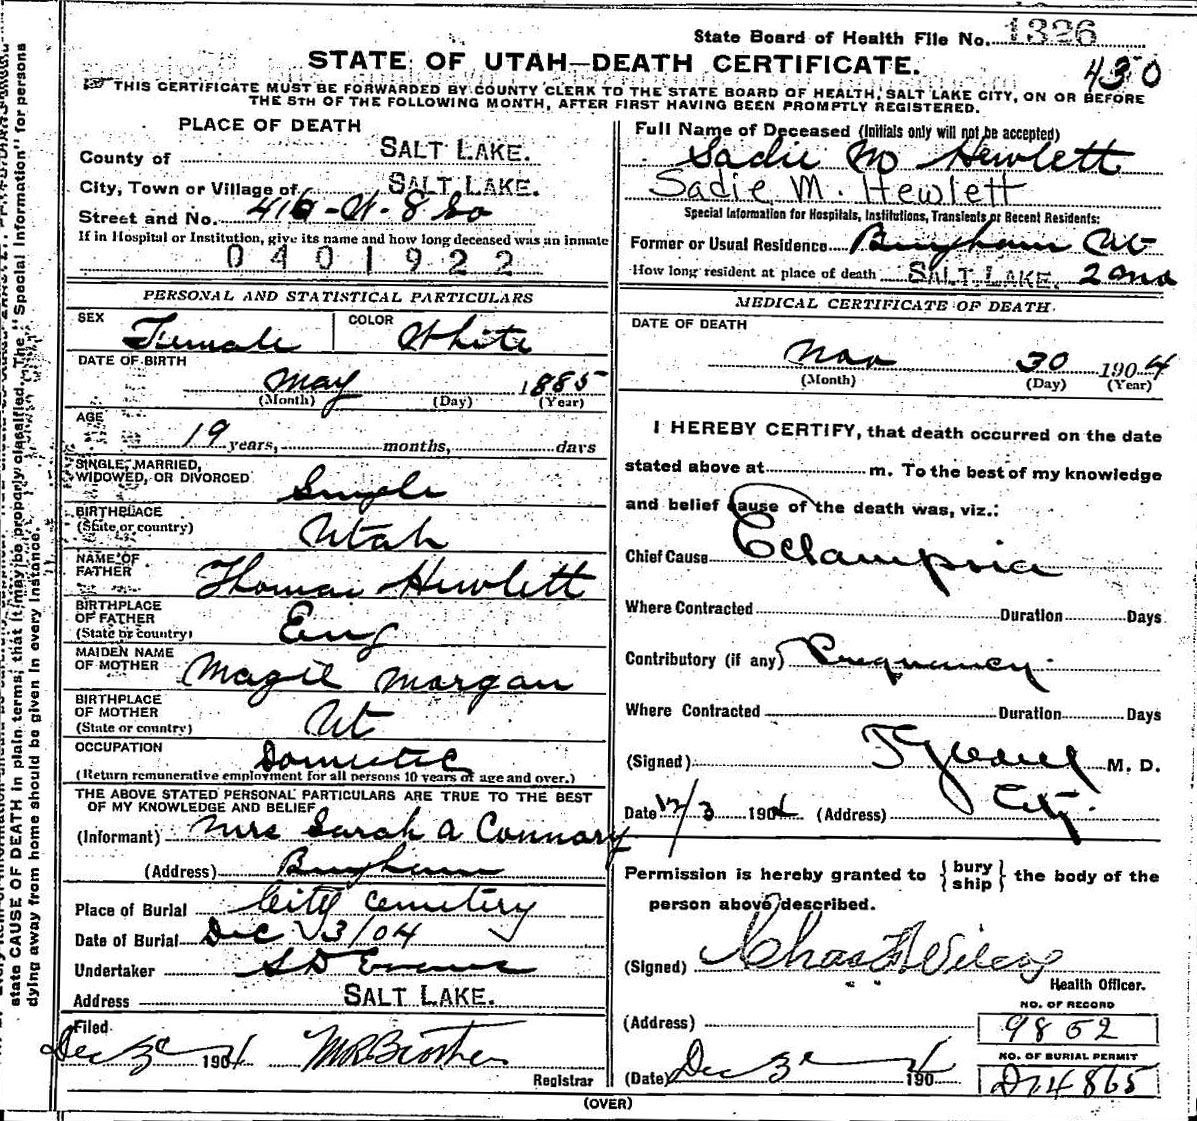 State Board of Health File No. 1326
STATE OF UTAH—DEATH CERTIFICATE.
430
THIS CERTIFICATE MUST BE FORWARDED BY COUNTY CLERK TO THE STATE BOARD OF HEALTH, SALT LAKE CITY, ON OR BEFORE
THE 5TH OF THE FOLLOWING MONTH, AFTER FIRST HAVING BEEN PROMPTLY REGISTERED.
PLACE OF DEATH
County of SALT LAKE.
City, Town or Village of SALT LAKE.
Street and No. 8 So
If in Hospital or Institution, give its name and how long deceased was an inmate
0401922
PERSONAL AND STATISTICAL PARTICULARS
SEX Female COLOR White
DATE OF BIRTH
May 1885
(Month) (Day) (Year)
AGE
19 years, months, days
SINGLE, MARRIED,
WIDOWED, OR DIVORCED Single
BIRTHPLACE
(State or country) Utah
NAME OF
FATHER Thomas Hewlett
BIRTHPLACE
OF FATHER
(State or country) Eng
MAIDEN NAME
OF MOTHER Magie Morgan
BIRTHPLACE
OF MOTHER
(State or country) Ut
OCCUPATION Domestic
(Return remunerative employment for all persons 10 years of age and over.)
THE ABOVE STATED PERSONAL PARTICULARS ARE TRUE TO THE BEST
OF MY KNOWLEDGE AND BELIEF
(Informant) Mrs Sarah A Connary
(Address) Bingham
Place of Burial City Cemetery
Date of Burial Dec 3/04
Undertaker S D Evans
Address SALT LAKE.
Filed
Dec 3 1904
Registrar
Full Name of Deceased (Initials only will not be accepted)
Sadie M Hewlett
Sadie M. Hewlett
Special Information for Hospitals, Institutions, Transients or Recent Residents:
Former or Usual Residence Bingham Ut
How long resident at place of death SALT LAKE. 2 mos
MEDICAL CERTIFICATE OF DEATH.
DATE OF DEATH
Nov 30 1904
(Month) (Day) (Year)
I HEREBY CERTIFY, that death occurred on the date
stated above at m. To the best of my knowledge
and belief cause of the death was, viz.:
Chief Cause Eclampsia
Where Contracted Duration Days
Contributory (if any) Pregnancy.
Where Contracted Duration Days
(Signed) M. D.
Date 12/3 1904 (Address) City.
Permission is hereby granted to { bury ship } the body of the
person above described.
(Signed) Chas Wilcox
Health Officer.
(Address)
NO. OF RECORD
9852
(Date) Dec 3 1904
NO. OF BURIAL PERMIT
D14865
(OVER)
state CAUSE OF DEATH in plain terms; that it may be properly classified. The "Special Information" for persons
dying away from home should be given in every instance.